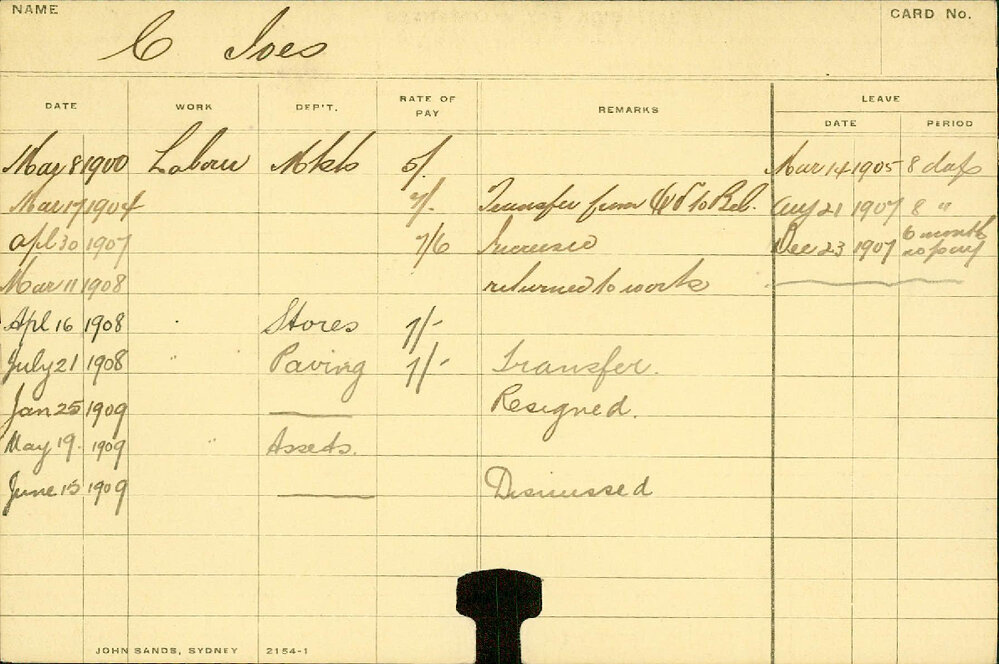 NAME
CARD No.
C Joes
LEAVE
DATE WORK DEP'T. RATE OF PAY REMARKS DATE PERIOD
May 8 1900 Labour Mkts 5/. Mar 14 1905 8 days
Mar 17 1904 7/. Transfer from to Aug 21 1907 8 "
Apl 30 1907 7/6 Increased Dec 23 1907 6 month no pay
Mar 11 1908 returned to work
Apl 16 1908 Stores 7/-
July 21 1908 " Paving 7/- Transfer.
Jan 25 1909 Resigned.
May 19. 1909 " Assets.
June 15 1909 Dismissed
JOHN SANDS, SYDNEY 2154-1